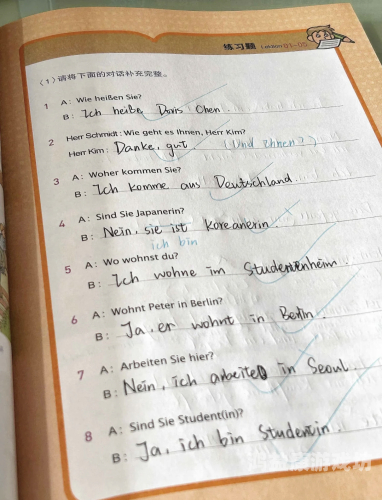 练习题 Lektion 01~05
(1) 请将下面的对话补充完整。
1 A: Wie heißen Sie?
B: Ich heiße Doris Chen.
2 Herr Schmidt: Wie geht es Ihnen, Herr Kim?
Herr Kim: Danke, gut (Und Ihnen?)
3 A: Woher kommen Sie?
B: Ich komme aus Deutschland.
4 A: Sind Sie Japanerin?
B: Nein, sie ist Koreanerin.
ich bin
5 A: Wo wohnst du?
B: Ich wohne im Studentenheim
6 A: Wohnt Peter in Berlin?
B: Ja, er wohnt in Berlin.
7 A: Arbeiten Sie hier?
B: Nein, ich arbeite in Seoul.
8 A: Sind Sie Student(in)?
B: Ja, ich bin Studentin.